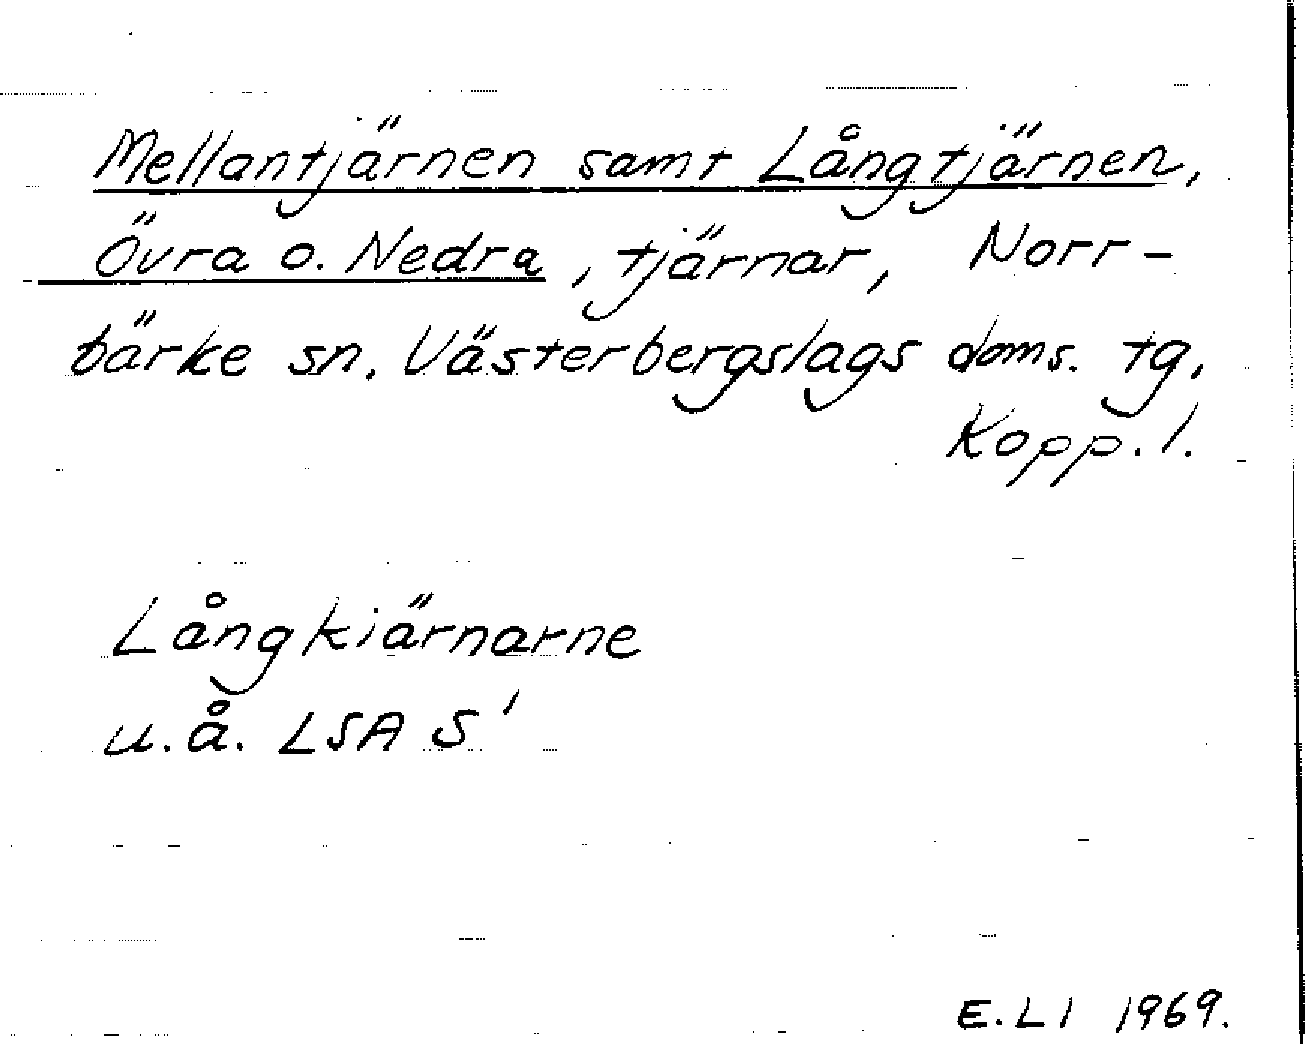 Mellantjärnen samt Långtjärnen,
Övra o. Nedra, tjärnar, Norr-
bärke sn. Västerbergslags doms. tg,
Kopp. l.
Långkiärnarne
u.å. LSA S'
E.LI 1969.